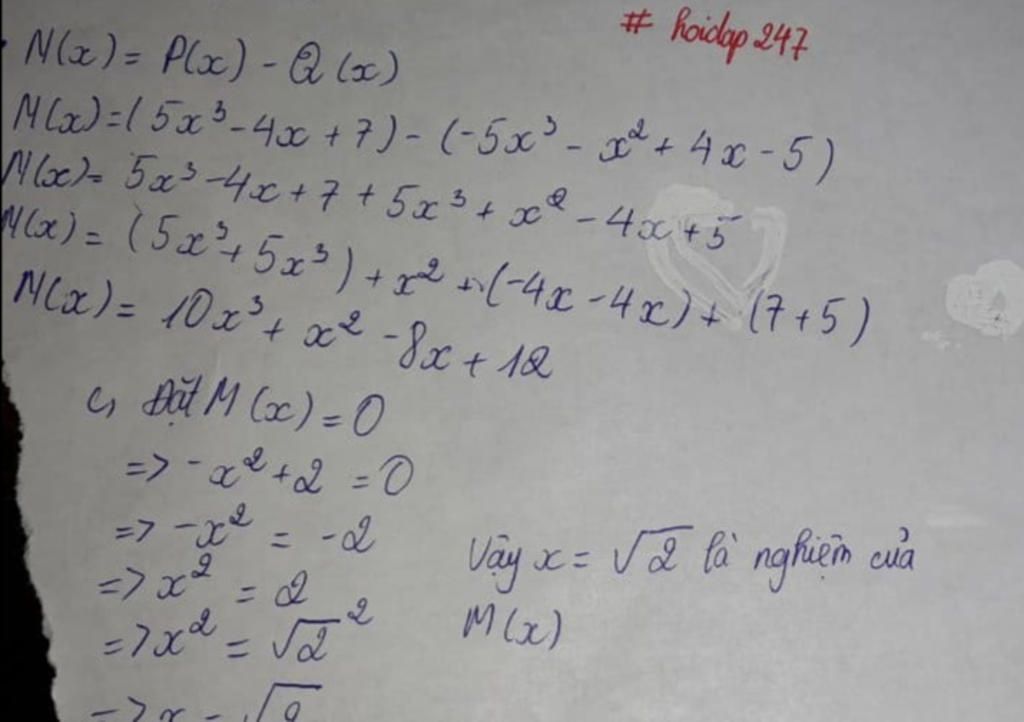 # hoidap247
N(x) = P(x) - Q(x)
N(x) = (5x³ - 4x + 7) - (-5x³ - x² + 4x - 5)
N(x) = 5x³ - 4x + 7 + 5x³ + x² - 4x + 5
N(x) = (5x³ + 5x³) + x² + (-4x - 4x) + (7 + 5)
N(x) = 10x³ + x² - 8x + 12
c, Đặt M(x) = 0
=> -x² + 2 = 0
=> -x² = -2
=> x² = 2
=> x² = √2²
=> x = √2
Vậy x = √2 là nghiệm của
M(x)